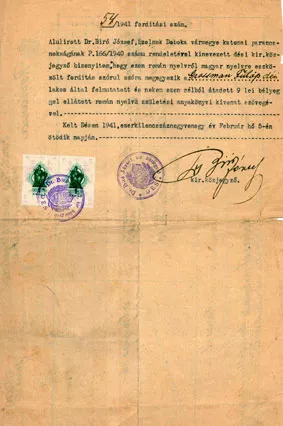 54/1941 fordítási szám.
Alulirott Dr.Biró József, Szolnok Doboka vármegye katonai parancs-
nokságának P.166/1940 számu rendeletével kinevezett dési kir.köz-
jegyző bizonyitom, hogy ezen román nyelvről magyar nyelvre eszkö-
zölt forditás szóról szóra megegyezik a
lakos által felmutatott és nekem ezen célból átadott 9 lei bélyeg
gel ellátott román nyelvü születési anyakönyvi kivonat szövegé-
vel.
Kelt Désen 1941, ezerkilencszáznegyvenegy évi Február hó 5-én
ötödik napján.
Dr Biró József
kir.közjegyző.